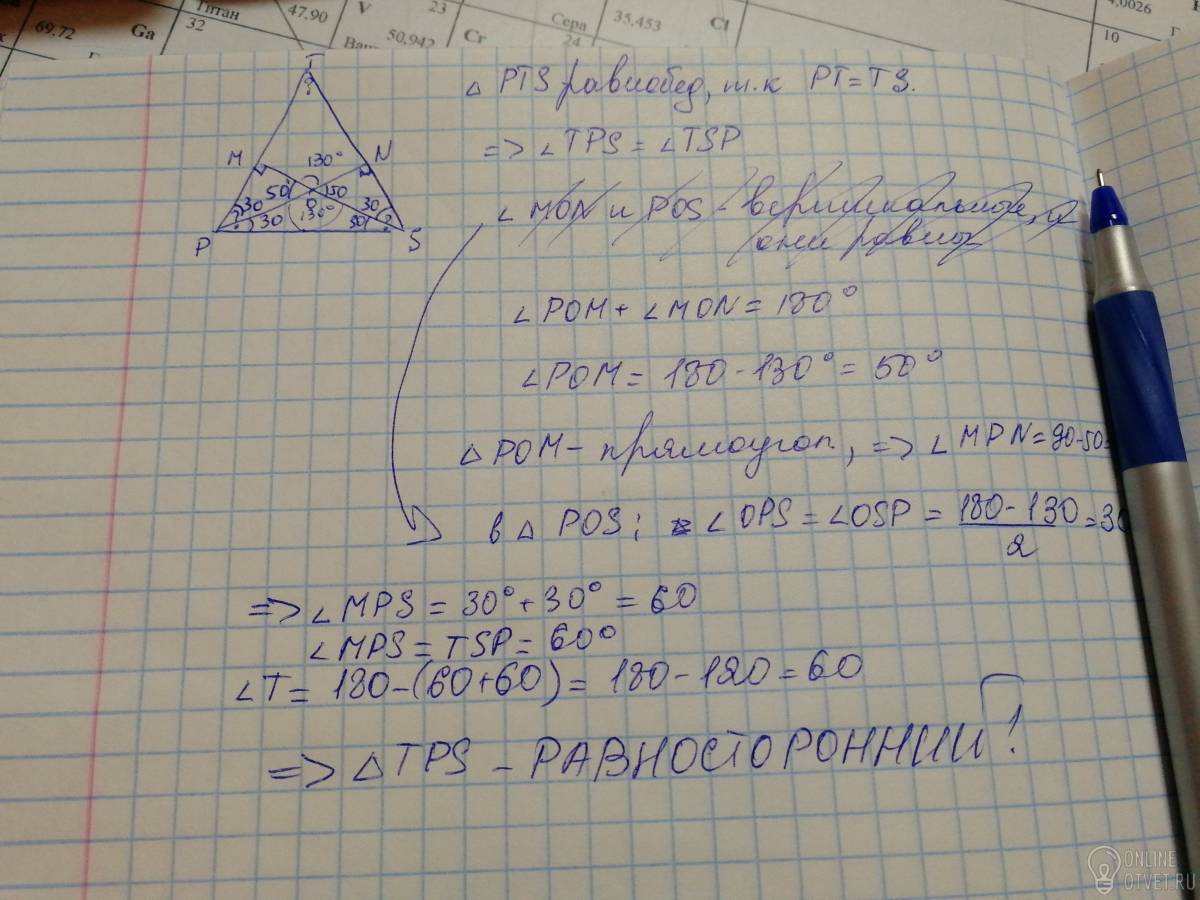 69.72 Ga
Титан
32
47.90
V 23
50,942
Cr
24
Сера
35,453 Cl
4.0026
10
T
?
M 130° N
50 O 150
30 30
30 130° 30
P S
△ PTS равнобед, т.к PT = TS.
=> ∠TPS = ∠TSP
∠MON и POS - вертикальные, и
они равны
∠POM + ∠MON = 180°
∠POM = 180 - 130° = 50°
△ POM - прямоугол, => ∠MPN = 90-50=
в △ POS; ∠OPS = ∠OSP = 180 - 130 / 2 = 30
=> ∠MPS = 30° + 30° = 60
∠MPS = TSP = 60°
∠T = 180 - (60+60) = 180 - 120 = 60
=> △ TPS - РАВНОСТОРОННИЙ!
ONLINE
OTVET.RU